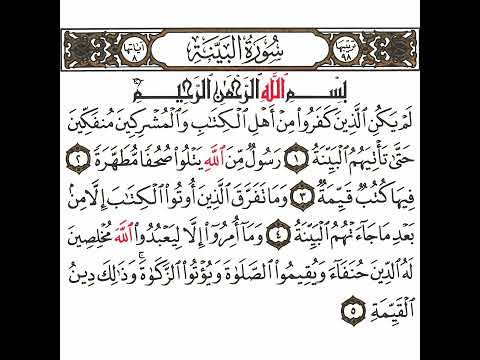 ترتيبها ٩٨ سُورَةُ الْبَيِّنَةِ آياتها ٨
بِسْمِ اللَّهِ الرَّحْمَٰنِ الرَّحِيمِ
لَمْ يَكُنِ الَّذِينَ كَفَرُوا مِنْ أَهْلِ الْكِتَابِ وَالْمُشْرِكِينَ مُنفَكِّينَ
حَتَّىٰ تَأْتِيَهُمُ الْبَيِّنَةُ ١ رَسُولٌ مِّنَ اللَّهِ يَتْلُوا صُحُفًا مُّطَهَّرَةً ٢
فِيهَا كُتُبٌ قَيِّمَةٌ ٣ وَمَا تَفَرَّقَ الَّذِينَ أُوتُوا الْكِتَابَ إِلَّا مِنۢ
بَعْدِ مَا جَاءَتْهُمُ الْبَيِّنَةُ ٤ وَمَا أُمِرُوا إِلَّا لِيَعْبُدُوا اللَّهَ مُخْلِصِينَ
لَهُ الدِّينَ حُنَفَاءَ وَيُقِيمُوا الصَّلَوٰةَ وَيُؤْتُوا الزَّكَوٰةَ ۚ وَذَٰلِكَ دِينُ
الْقَيِّمَةِ ٥